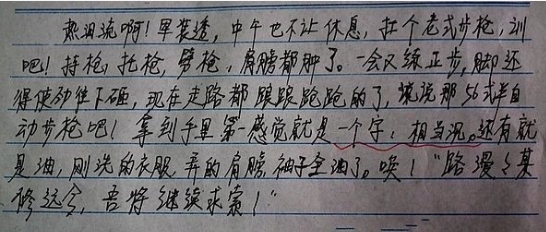 热泪流啊!军装透,中午也不让休息,扛个老式步枪,训
吧!持枪,托枪,劈枪,肩膀都肿了。一会又练正步,脚还
得使劲往下砸,现在走路都踉踉跄跄的了,就说那56式半自
动步枪吧!拿到手里第一感觉就是一个字:相当沉。还有就
是油,刚洗的衣服弄的肩膀袖子全油了。唉!“路漫々其
修远兮,吾将继续求索!”